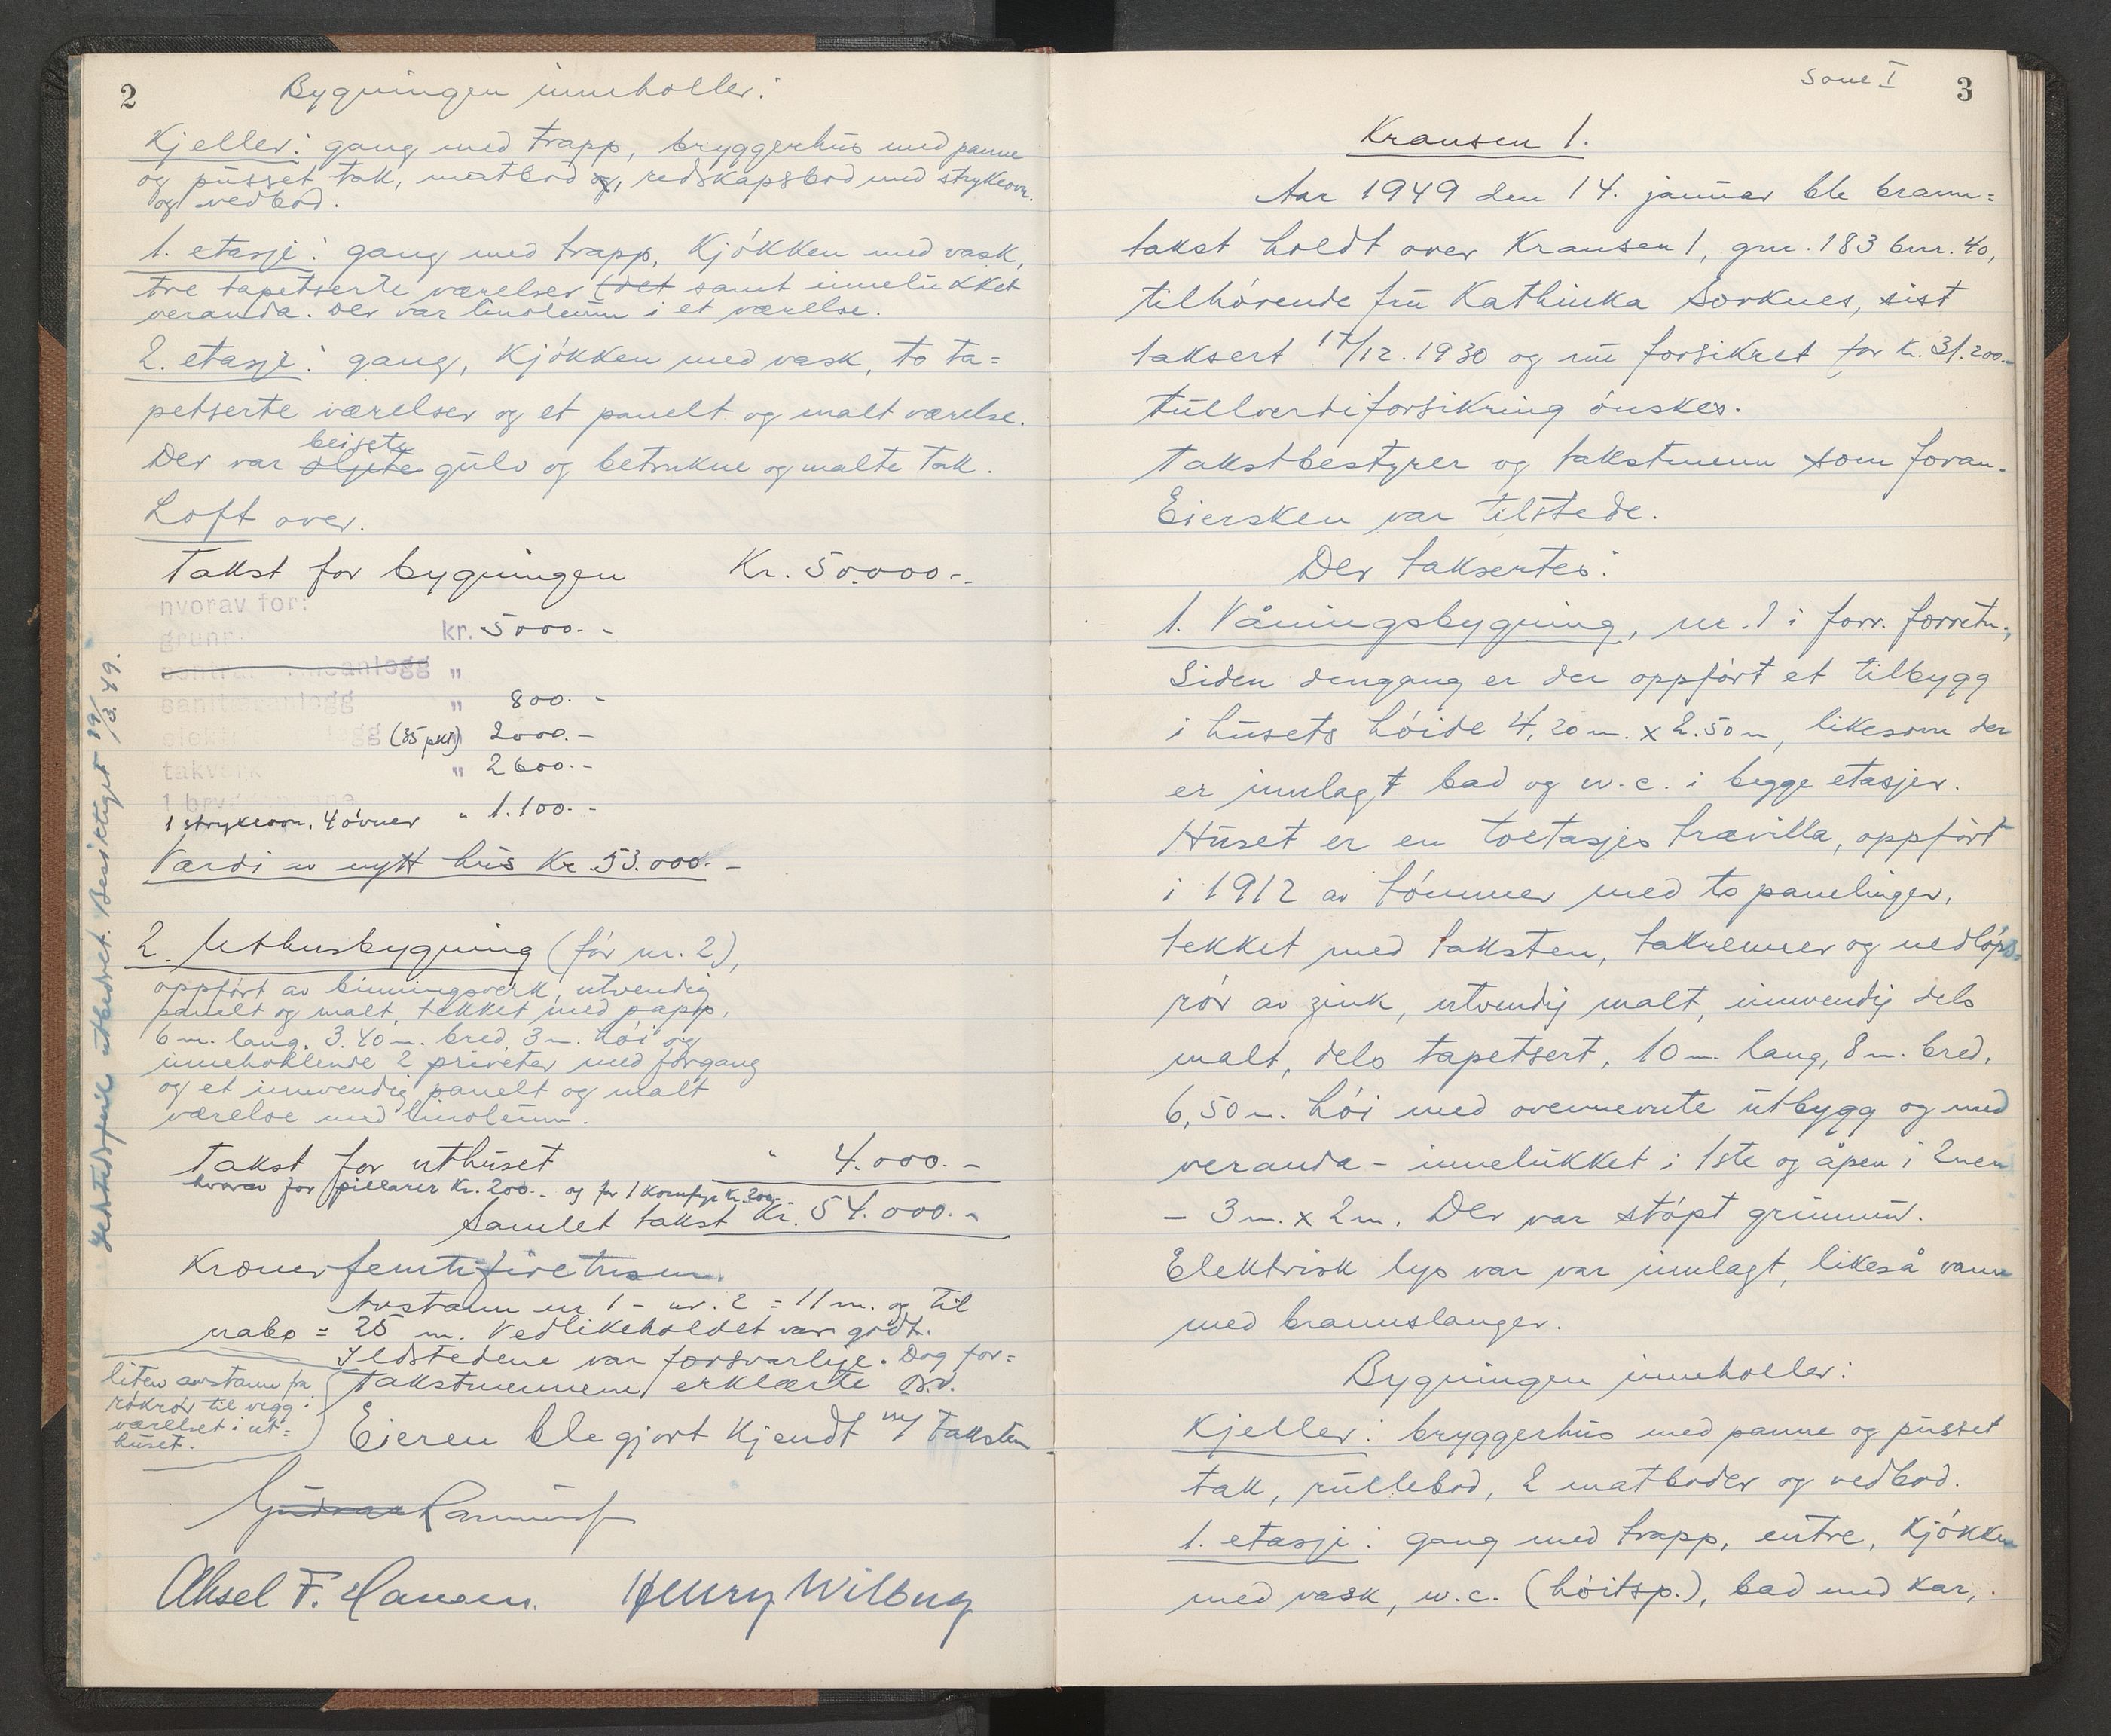 2
Bygningen inneholder:
Kjeller: gang med trapp, bryggerhus med panne
og pusset tak, matbod og, redskapsbod med strykeovn.
og vedbod.
1. etasje: gang med trapp, kjøkken med vask,
tre tapetserte værelser (det samt innelukket
veranda. Der var linoleum i et værelse.
2. etasje: gang, kjøkken med vask, to ta=
petserte værelser og et panelt og malt værelse.
beisete
Der var gulv og betrukne og malte tak.
Loft over.
Takst for bygningen Kr. 50.000.-
hvorav for:
grunn kr. 5000.-
sentralvarmeanlegg "
sanitæranlegg " 800.-
elektr. anlegg (35 pkt) 2000.-
takverk " 2600.-
1 bryggepanne
1 strykeovn, 4 ovner " 1.100.-
Værdi av nytt hus Kr. 53.000.-
2. Uthusbygning (før nr. 2),
oppført av binningsverk, utvendig
panelt og malt, tekket med papp,
6 m. lang, 3.40 m. bred, 3 m. høi og
inneholdende 2 priveter med forgang
og et innvendig panelt og malt
værelse med linoleum.
Takst for uthuset " 4.000.-
hvorav for pillarer Kr. 200.- og for 1 komfyr Kr. 200.-
Samlet takst Kr. 54.000.-
Kroner femtifiretusen.
Avstann nr 1 - nr. 2 = 11 m. og til
nabo = 25 m. Vedlikeholdet var godt.
Ildstedene var forsvarlige. Dog for=
liten avstann fra
rökrör til vegg i
værelset i ut=
huset.
Takstmennene erklærte o.s.v.
Eieren ble gjort kjendt m/ taksten
Aksel F. Hansen. Henry Wilberg
Ildstedsfeil utbedret. Besiktiget 29/3.49.
Sone I
3
Kransen 1.
Aar 1949 den 14. januar ble brann=
takst holdt over Kransen 1, gnr. 183 bnr. 40,
tilhørende fru Kathinka Sorknes, sist
taksert 17/12.1930 og nu forsikret for kr. 31.200.-
Fullverdiforsikring ønskes.
Takstbestyrer og takstmenn som foran.
Eiersken var tilstede.
Der taksertes:
1. Våningsbygning, nr. 1 i forr. forretn.,
Siden dengang er der oppført et tilbygg
i husets høide 4,20 m. x 2.50 m, likesom der
er innlagt bad og w.c. i begge etasjer.
Huset er en toetasjes trævilla, oppført
i 1912 av tømmer med to panelinger,
tekket med taksten, takrenner og nedløps=
rør av zink, utvendig malt, innvendig dels
malt, dels tapetsert, 10 m. lang, 8 m. bred,
6,50 m. høi med ovennevnte utbygg og med
veranda - innelukket i 1ste og åpen i 2nen
- 3 m. x 2 m. Der var støpt grunnmur.
Elektrisk lys var var innlagt, likeså vann
med brannslanger.
Bygningen inneholder:
Kjeller: bryggerhus med panne og pusset
tak, rullebod, 2 matboder og vedbod.
1. etasje: gang med trapp, entre, kjøkken
med vask, w.c. (høitsp.), bad med kar,